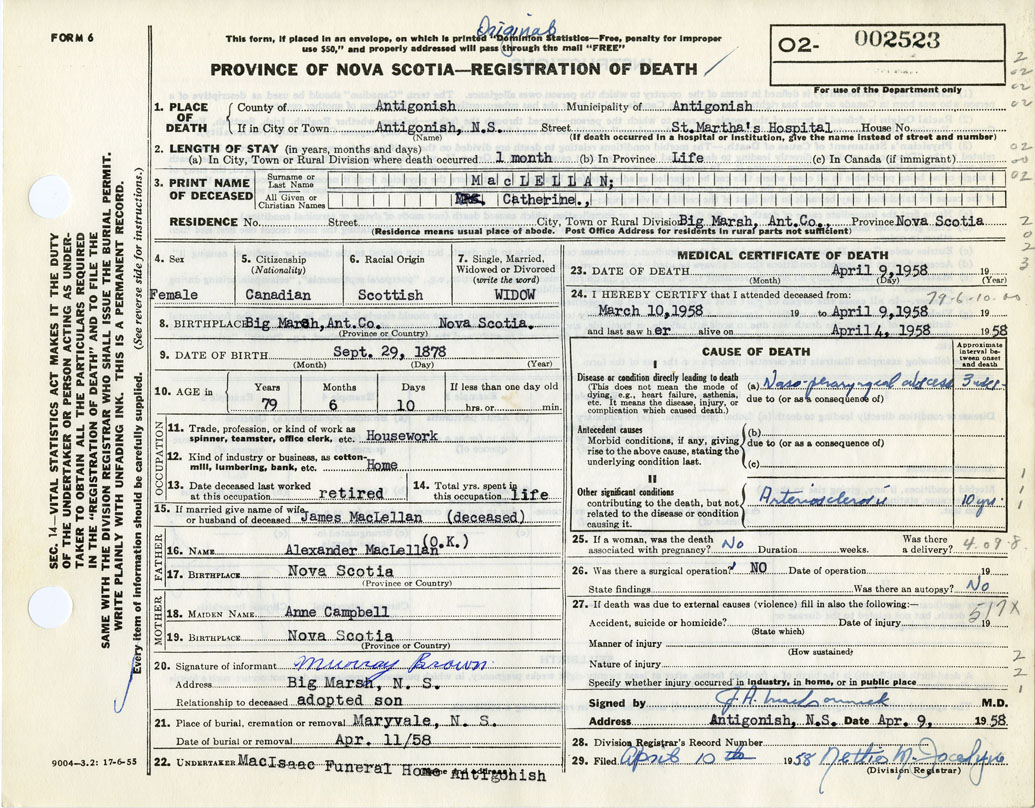 FORM 6
Original
This form, if placed in an envelope, on which is printed "Dominion Statistics—Free, penalty for improper
use $50," and properly addressed will pass through the mail "FREE"
PROVINCE OF NOVA SCOTIA—REGISTRATION OF DEATH
O2- 002523
For use of the Department only
1. PLACE OF DEATH
County of Antigonish Municipality of Antigonish
If in City or Town Antigonish, N.S. Street St.Martha's Hospital House No.
(Name) (If death occurred in a hospital or institution, give the name instead of street and number)
2. LENGTH OF STAY (in years, months and days)
(a) In City, Town or Rural Division where death occurred 1 month (b) In Province Life (c) In Canada (if immigrant)
3. PRINT NAME OF DECEASED
Surname or Last Name MacLELLAN;
All Given or Christian Names Mrs. Catherine.,
RESIDENCE No. Street City, Town or Rural Division Big Marsh, Ant.Co., Province Nova Scotia
(Residence means usual place of abode. Post Office Address for residents in rural parts not sufficient)
4. Sex
Female
5. Citizenship
(Nationality)
Canadian
6. Racial Origin
Scottish
7. Single, Married, Widowed or Divorced
(write the word)
WIDOW
8. BIRTHPLACE Big Marsh,Ant.Co. Nova Scotia.
(Province or Country)
9. DATE OF BIRTH Sept. 29, 1878
(Month) (Day) (Year)
10. AGE in
Years Months Days If less than one day old
79 6 10 hrs. or min.
OCCUPATION
11. Trade, profession, or kind of work as
spinner, teamster, office clerk, etc. Housework
12. Kind of industry or business, as cotton-
mill, lumbering, bank, etc. Home
13. Date deceased last worked
at this occupation retired
14. Total yrs. spent in
this occupation life
15. If married give name of wife
or husband of deceased James MacLellan (deceased)
FATHER
16. NAME Alexander MacLellan (O.K.)
17. BIRTHPLACE Nova Scotia
(Province or Country)
MOTHER
18. MAIDEN NAME Anne Campbell
19. BIRTHPLACE Nova Scotia
(Province or Country)
20. Signature of informant Murray Brown
Address Big Marsh, N. S.
Relationship to deceased adopted son
21. Place of burial, cremation or removal Maryvale, N. S.
Date of burial or removal Apr. 11/58
22. UNDERTAKER MacIsaac Funeral Home Antigonish
Name and address
9004—3.2: 17-6-55
SEC. 14—VITAL STATISTICS ACT MAKES IT THE DUTY
OF THE UNDERTAKER OR PERSON ACTING AS UNDER-
TAKER TO OBTAIN ALL THE PARTICULARS REQUIRED
IN THE "REGISTRATION OF DEATH" AND TO FILE THE
SAME WITH THE DIVISION REGISTRAR WHO SHALL ISSUE THE BURIAL PERMIT.
WRITE PLAINLY WITH UNFADING INK. THIS IS A PERMANENT RECORD.
Every item of information should be carefully supplied. (See reverse side for instructions.)
MEDICAL CERTIFICATE OF DEATH
23. DATE OF DEATH April 9,1958 19
(Month) (Day) (Year)
24. I HEREBY CERTIFY that I attended deceased from: 79-6-10-00
March 10,1958 19 to April 9,1958 19
and last saw her alive on April 4, 1958 19 58
CAUSE OF DEATH
Approximate interval between onset and death
I
Disease or condition directly leading to death
(This does not mean the mode of
dying, e.g., heart failure, asthenia,
etc. It means the disease, injury, or
complication which caused death.)
(a) Naso-pharyngial abscess
due to (or as a consequence of)
Antecedent causes
Morbid conditions, if any, giving
rise to the above cause, stating the
underlying condition last.
(b)
due to (or as a consequence of)
(c)
II
Other significant conditions
contributing to the death, but not
related to the disease or condition
causing it.
Arteriosclerosis 10 yrs.
25. If a woman, was the death
associated with pregnancy? No Duration weeks. Was there
a delivery? 4.09.8
26. Was there a surgical operation? NO Date of operation 19
State findings Was there an autopsy? No
27. If death was due to external causes (violence) fill in also the following:— 517X
Accident, suicide or homicide? Date of injury 19
(State which)
Manner of injury
(How sustained)
Nature of injury
Specify whether injury occurred in industry, in home, or in public place
Signed by J.A. MacCormick M.D.
Address Antigonish, N.S. Date Apr. 9, 19 58.
28. Division Registrar's Record Number
29. Filed April 10th 1958 Nettie M. Jocelyne
(Division Registrar)